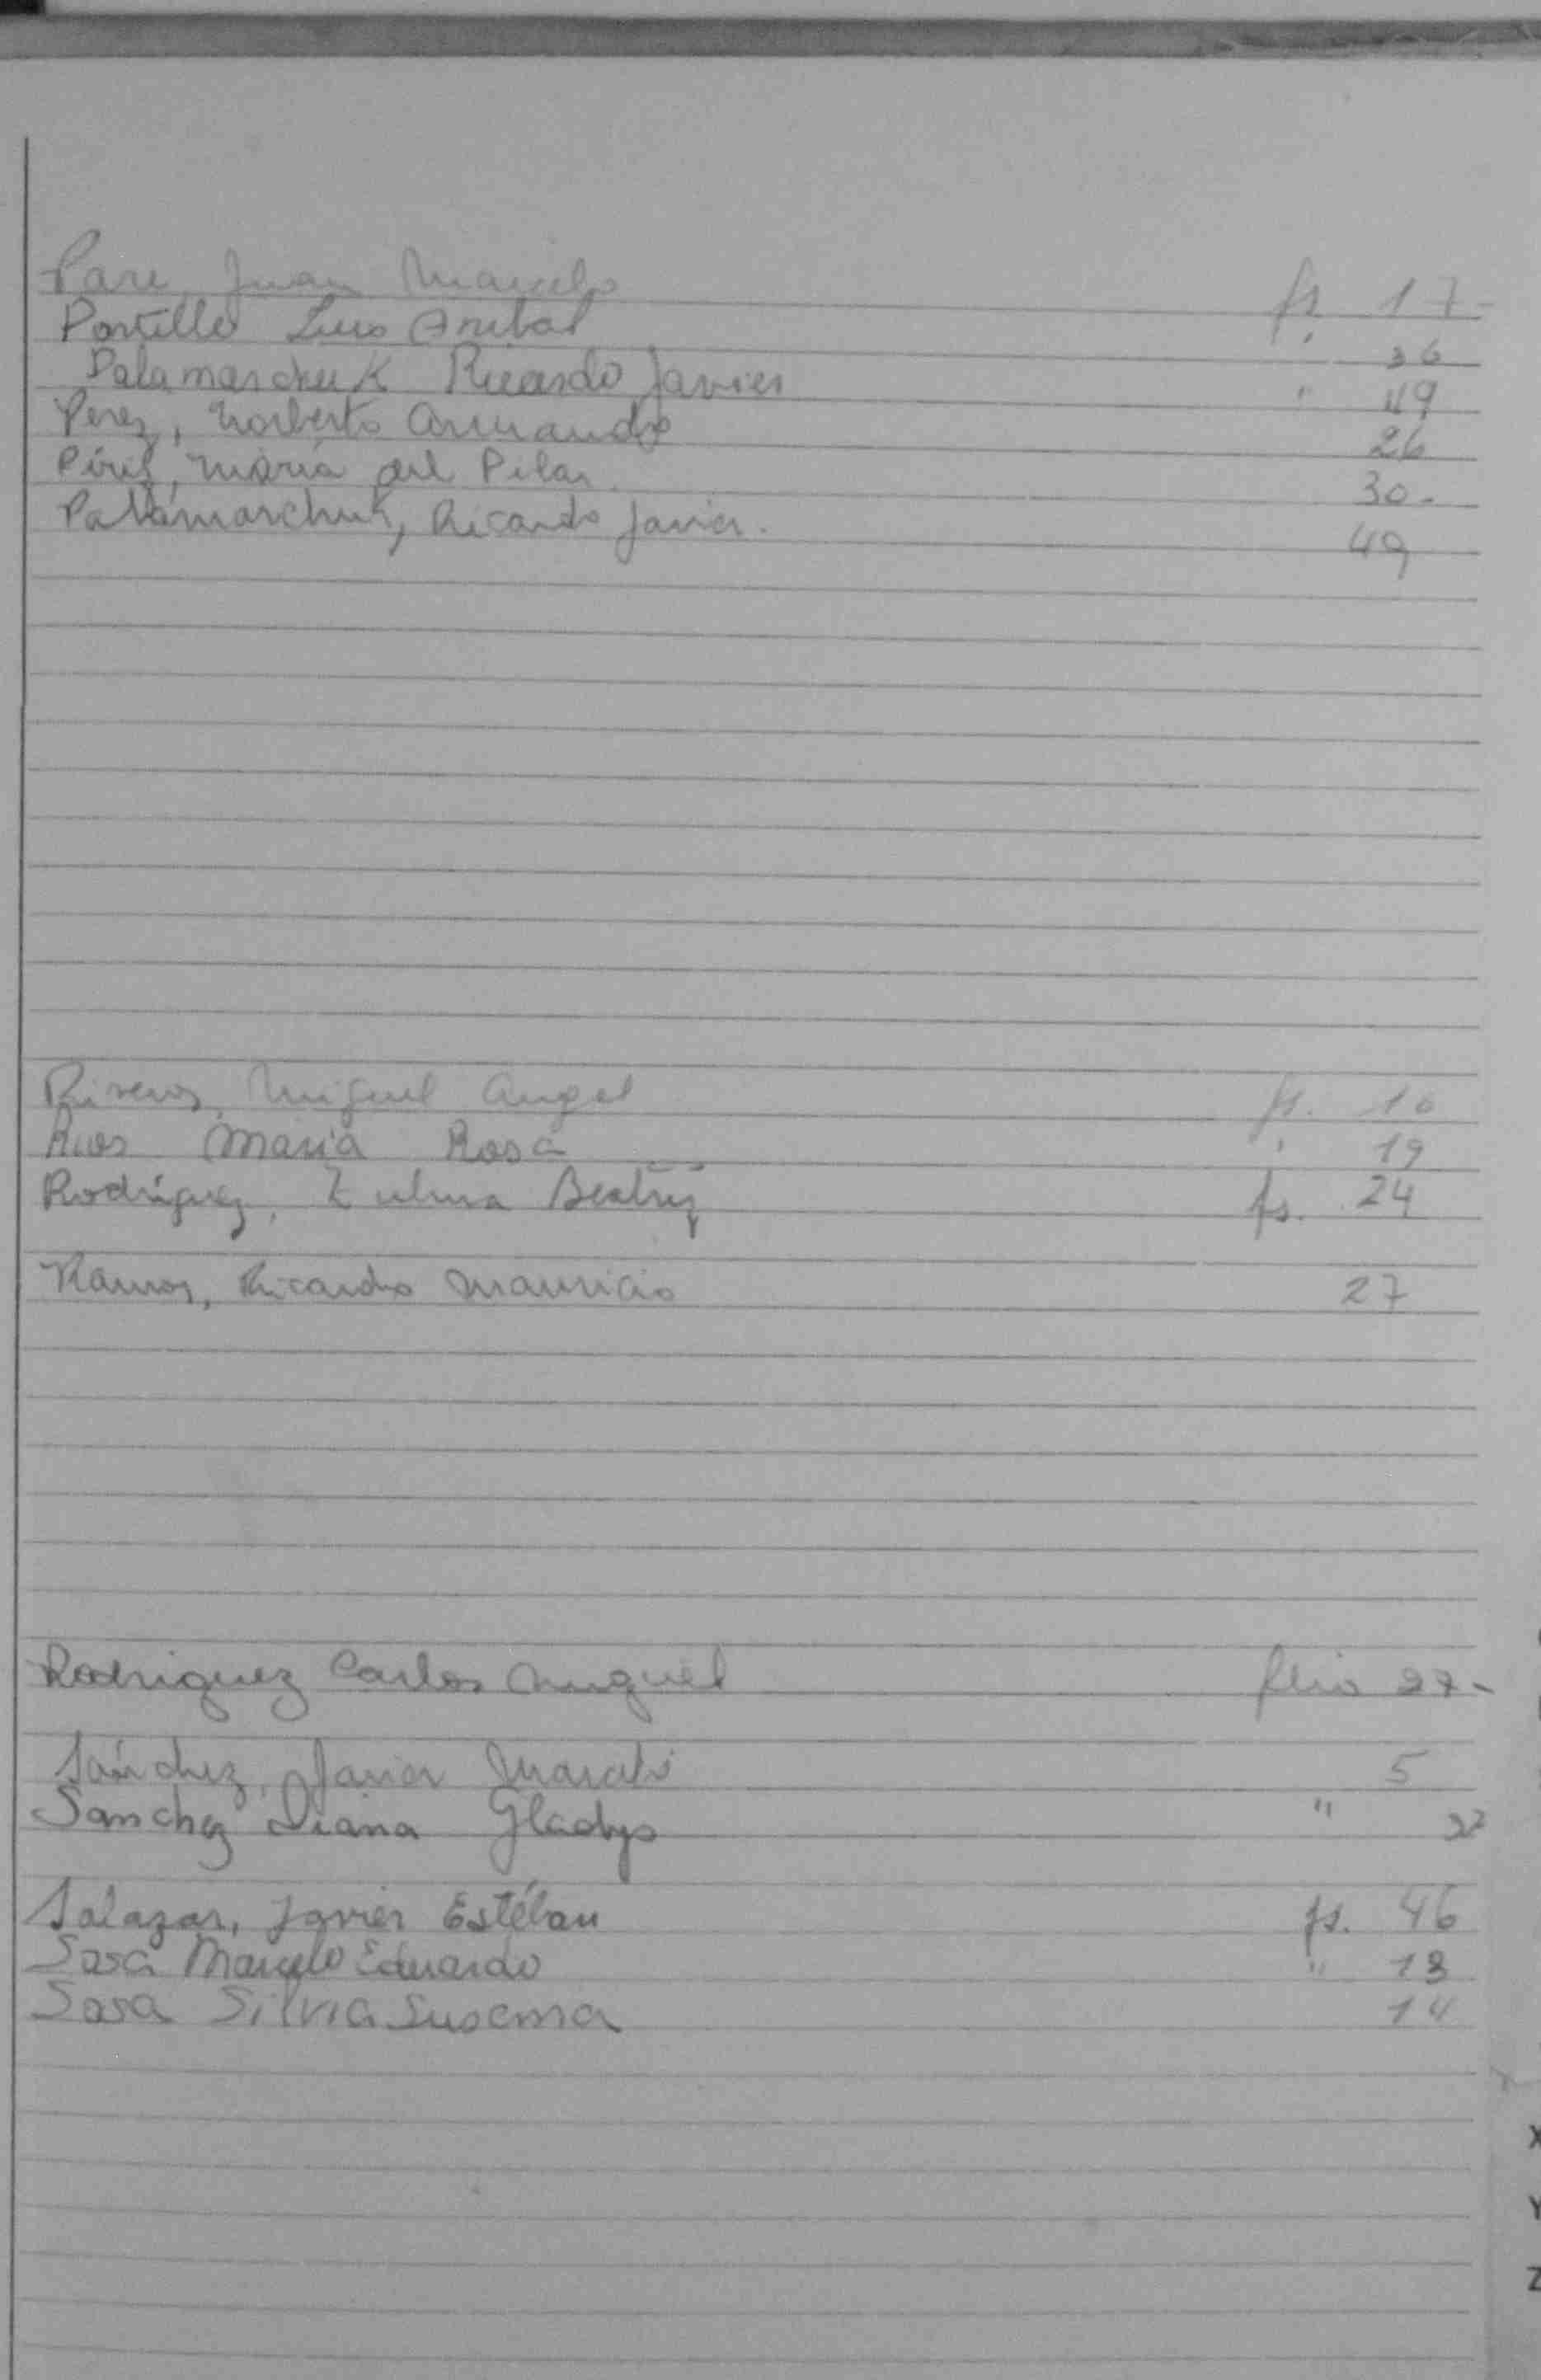 Pare, Juan Marcelo fs. 17-
Portillo Luis Anibal " 36
Palamarchuk Ricardo Javier " 49
Perez, Norberto Armando 26
Piris, María del Pilar. 30-
Palamarchuk, Ricardo Javier. 49
Riveros, Miguel Angel fs. 10
Rios Maria Rosa " 19
Rodríguez, Zulma Beatriz fs. 24
Ramos, Ricardo Mauricio 27
Rodriguez Carlos Miguel folio 27-
Sánchez, Javier Marcelo 5
Sanchez Diana Gladys " 22
Salazar, Javier Estéban fs. 46
Sosa Marcelo Eduardo " 13
Sosa Silvia Susana 14
X
Y
Z